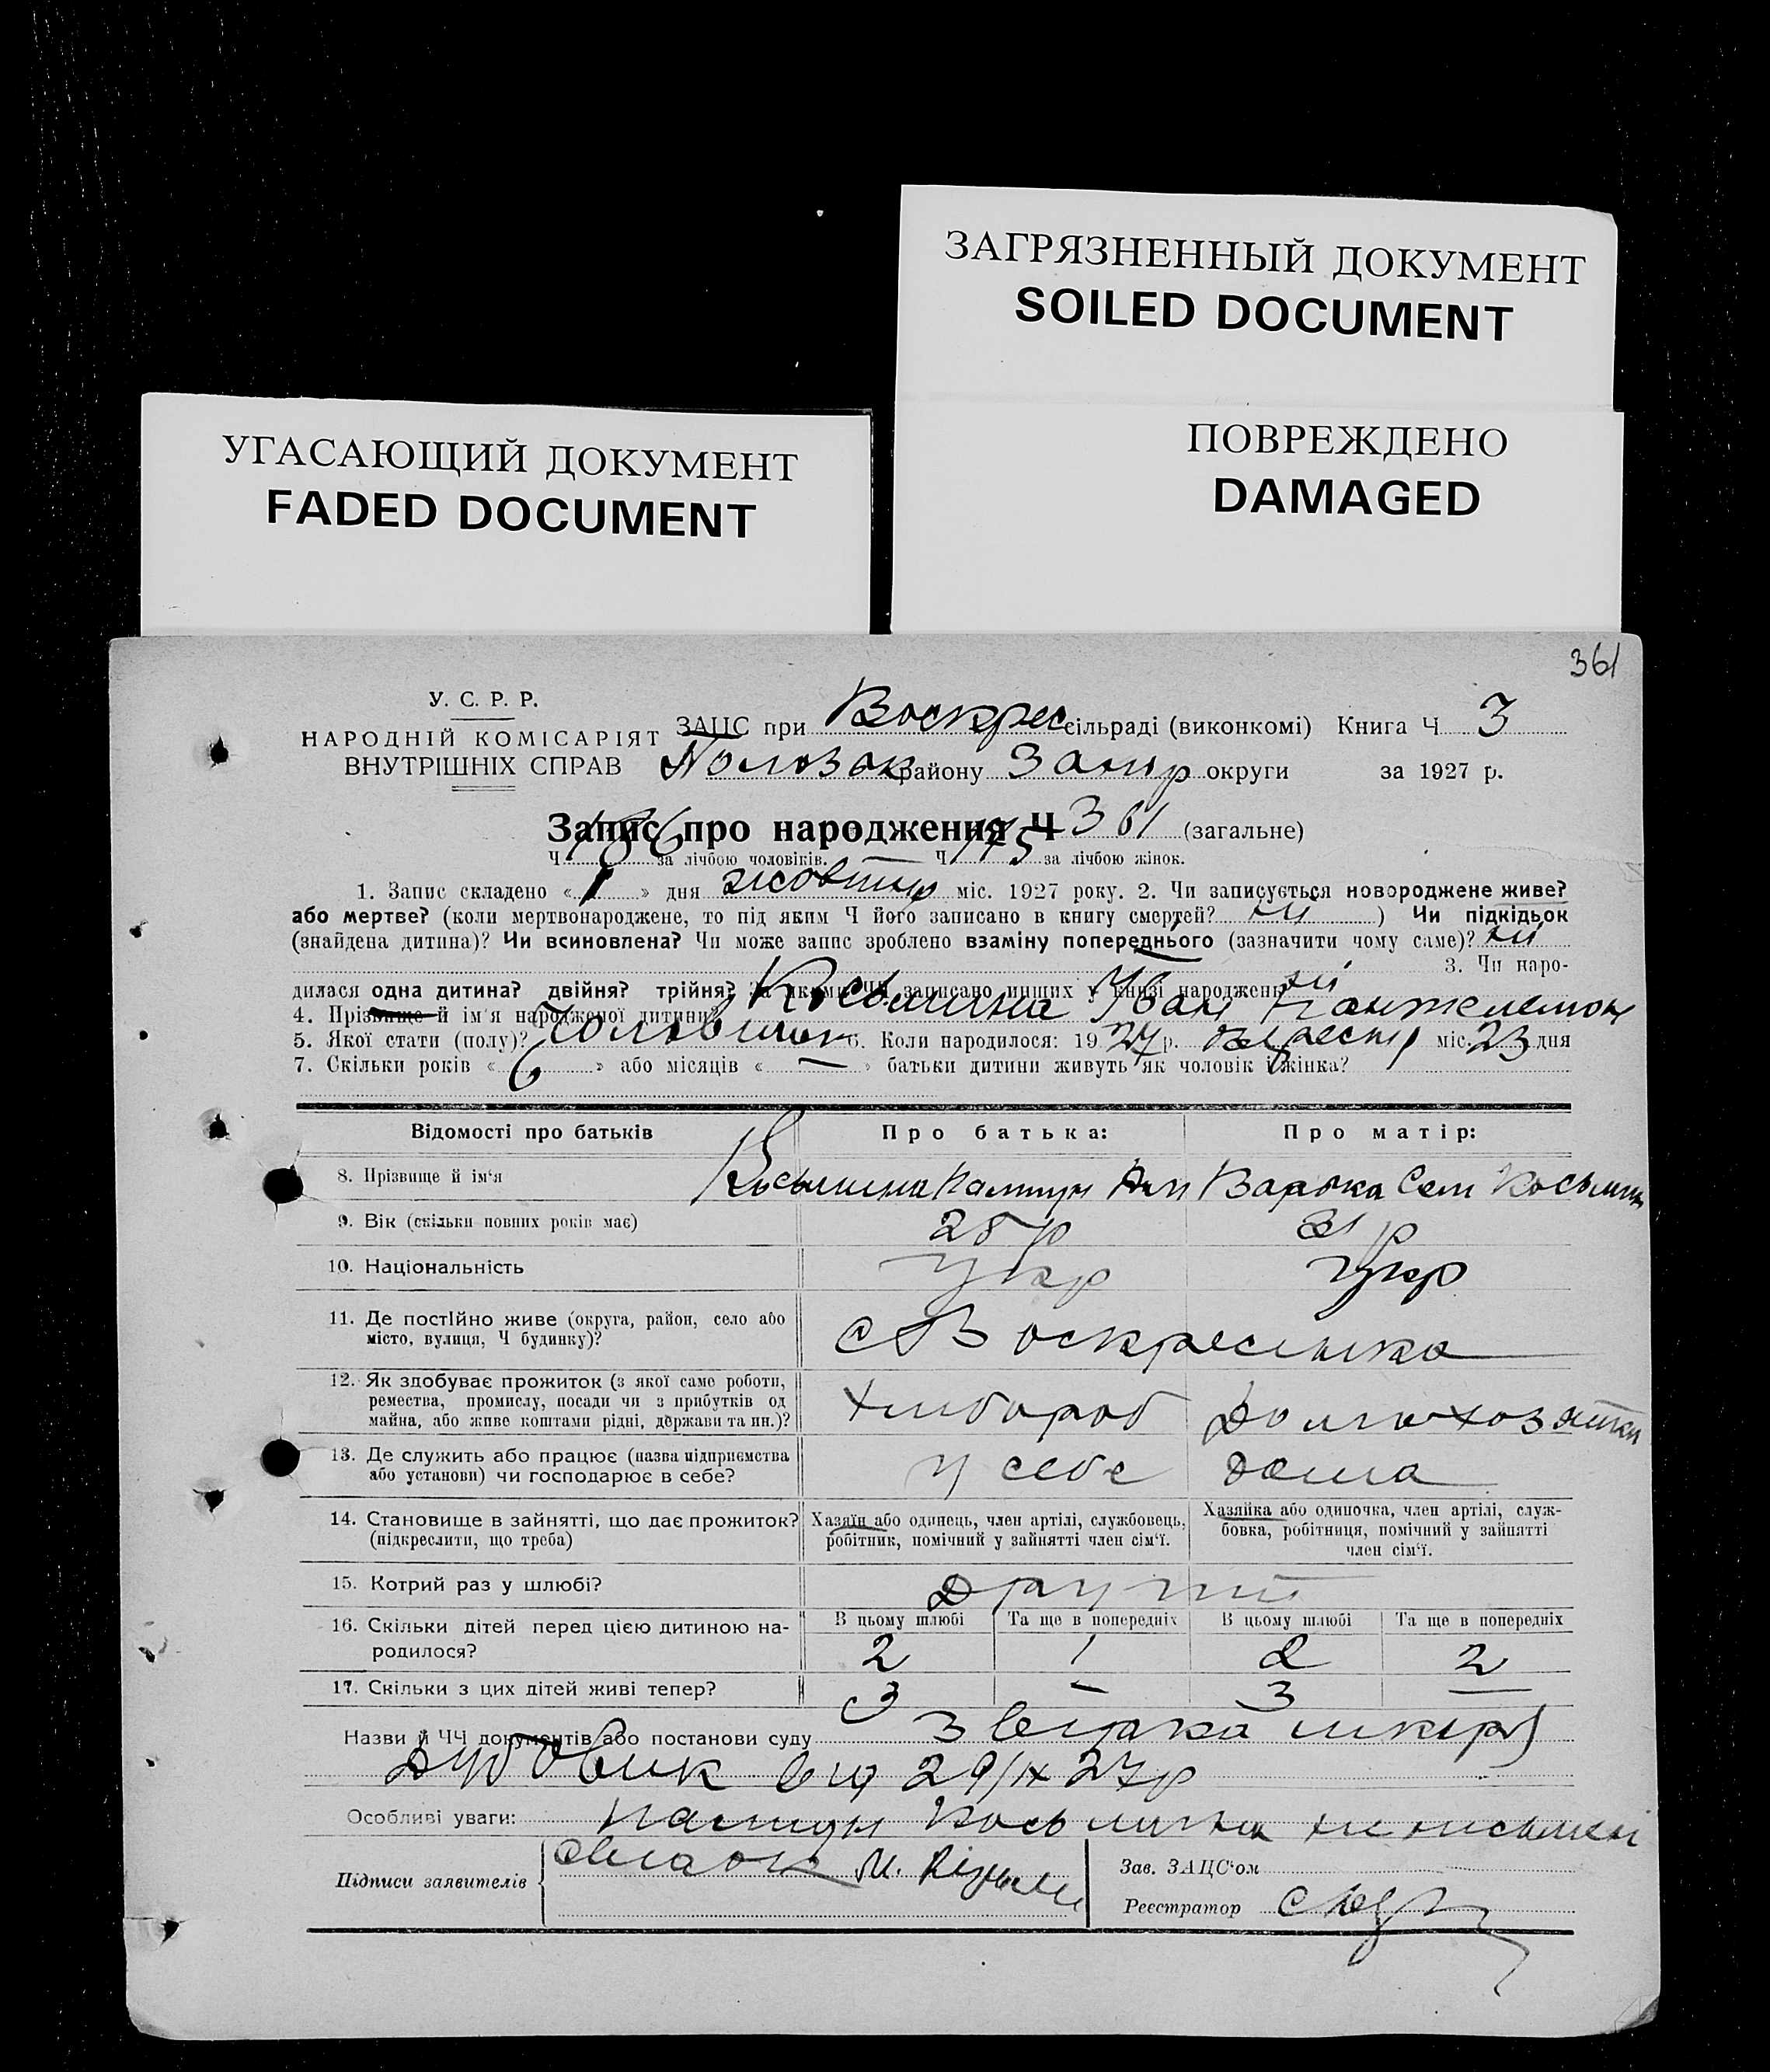 ЗАГРЯЗНЕННЫЙ ДОКУМЕНТ
SOILED DOCUMENT
ПОВРЕЖДЕНО
DAMAGED
УГАСАЮЩИЙ ДОКУМЕНТ
FADED DOCUMENT
361
У. С. Р. Р.
НАРОДНІЙ КОМІСАРІЯТ
ВНУТРІШНІХ СПРАВ
ЗАЦС при Воскрес сільраді (виконкомі) Книга Ч 3
Пологзак району Запор округи за 1927 р.
Запис про народження Ч 361 (загальне)
Ч 186 за лічбою чоловіків. — Ч 175 за лічбою жінок.
1. Запис складено « 1 » дня жовтня міс. 1927 року. 2. Чи записується новороджене живе?
або мертве? (коли мертвонароджене, то під яким Ч його записано в книгу смертей? ні ) Чи підкідьок
(знайдена дитина)? Чи всиновлена? Чи може запис зроблено взаміну попереднього (зазначити чому саме)? ні
3. Чи наро-
дилася одна дитина? двійня? трійня? За якими ЧЧ записано инших у книзі народжень ні
4. Прізвище й ім'я народженої дитини? Косьмина Іван Пантелемон
5. Якої стати (полу)? Чоловіч 6. Коли народилося: 1927 р. вересня міс. 23 дня
7. Скільки років « 6 » або місяців « — » батьки дитини живуть як чоловік і жінка?
Відомості про батьків Про батька: Про матір:
8. Прізвище й ім'я Косьмина Варька Сем Косьмин
9. Вік (скільки повних років має) 28 р 31 р
10. Національність Укр Укр
11. Де постійно живе (округа, район, село або
місто, вулиця, Ч будинку)? с Воскресенка
12. Як здобуває прожиток (з якої саме роботи,
ремества, промислу, посади чи з прибутків од
майна, або живе коштами рідні, держави та ин.)? Хлибороб Домохозяйка
13. Де служить або працює (назва підприємства
або установи) чи господарює в себе? у себе дома
14. Становище в зайнятті, що дає прожиток?
(підкреслити, що треба)
Хазяїн або одинець, член артілі, службовець,
робітник, помічний у зайнятті член сім'ї.
Хазяйка або одиночка, член артілі, служ-
бовка, робітниця, помічний у зайнятті
член сім'ї.
15. Котрий раз у шлюбі? Другий
В цьому шлюбі Та ще в попередніх В цьому шлюбі Та ще в попередніх
16. Скільки дітей перед цією дитиною на-
родилося? 2 1 2 2
17. Скільки з цих дітей живі тепер? 3 — 3 —
Назви й ЧЧ документів або постанови суду
від 29/IX 27р
Особливі уваги: Косьмина неписьмен
Підписи заявителів М.
Зав. ЗАЦС'ом
Реєстратор